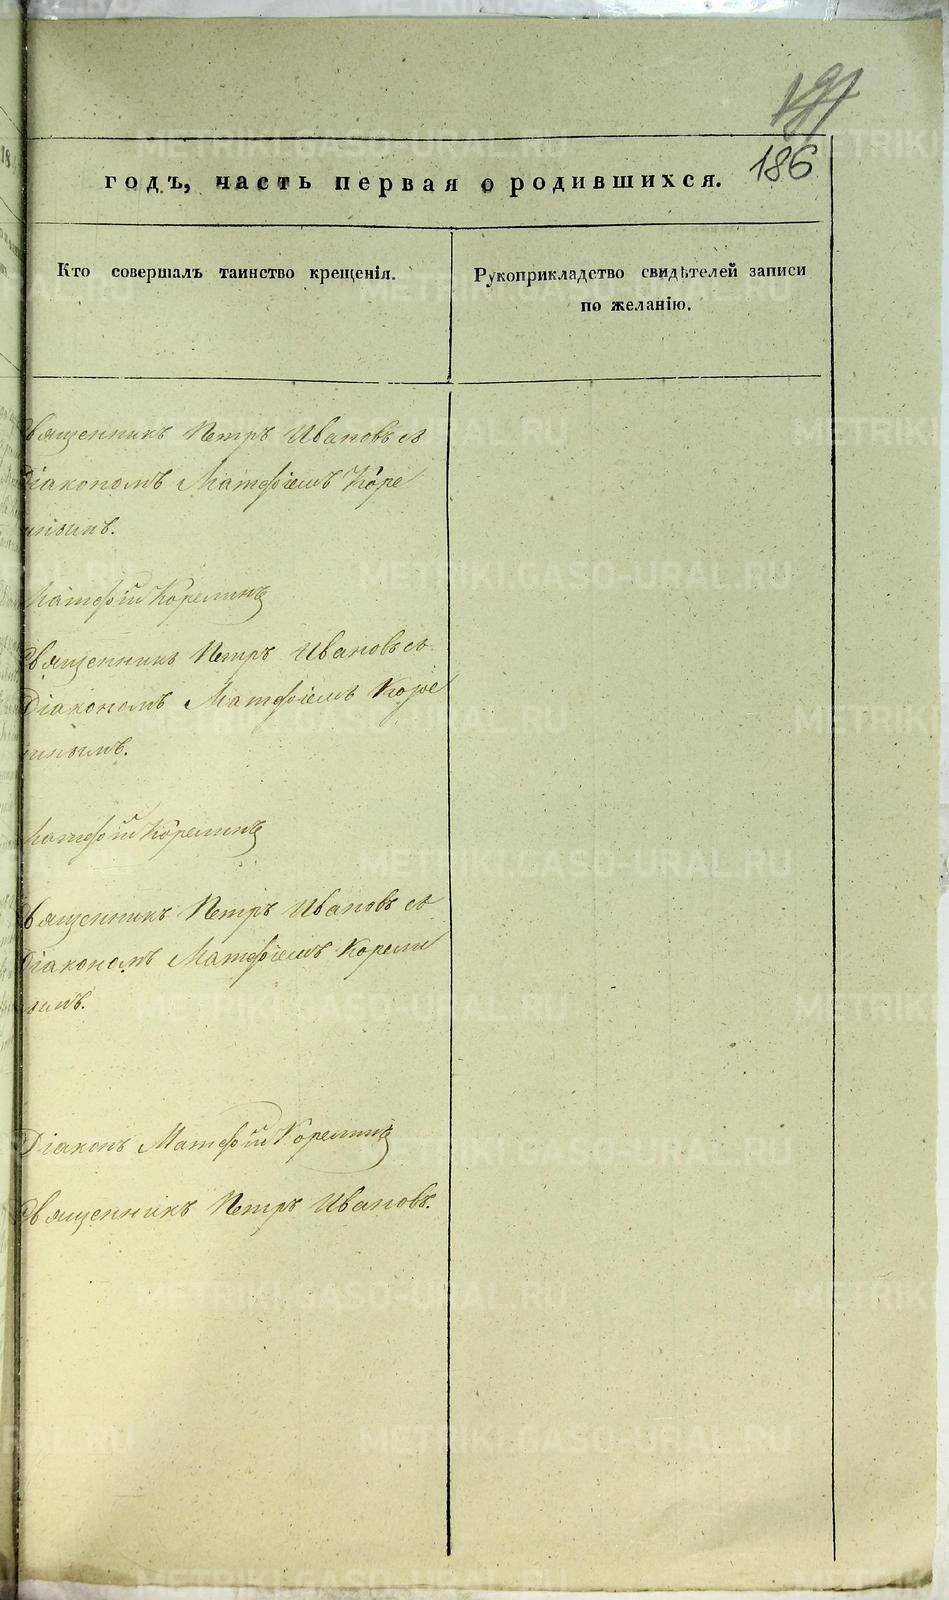 191
186
годъ, часть первая о родившихся.
Кто совершалъ таинство крещенія.
Рукоприкладство свидѣтелей записи
по желанію.
Священникъ Петръ Ивановъ съ
Діакономъ Матфіемъ Коре
Матфій Корелинъ
Священникъ Петръ Ивановъ съ
Діакономъ Матфіемъ Коре
Матфій Корелинъ
Священникъ Петръ Ивановъ съ
Діакономъ Матфіемъ Корели
нымъ.
Діаконъ Матфій Корелинъ
Священникъ Петръ Ивановъ.
METRIKI.GASO-URAL.RU